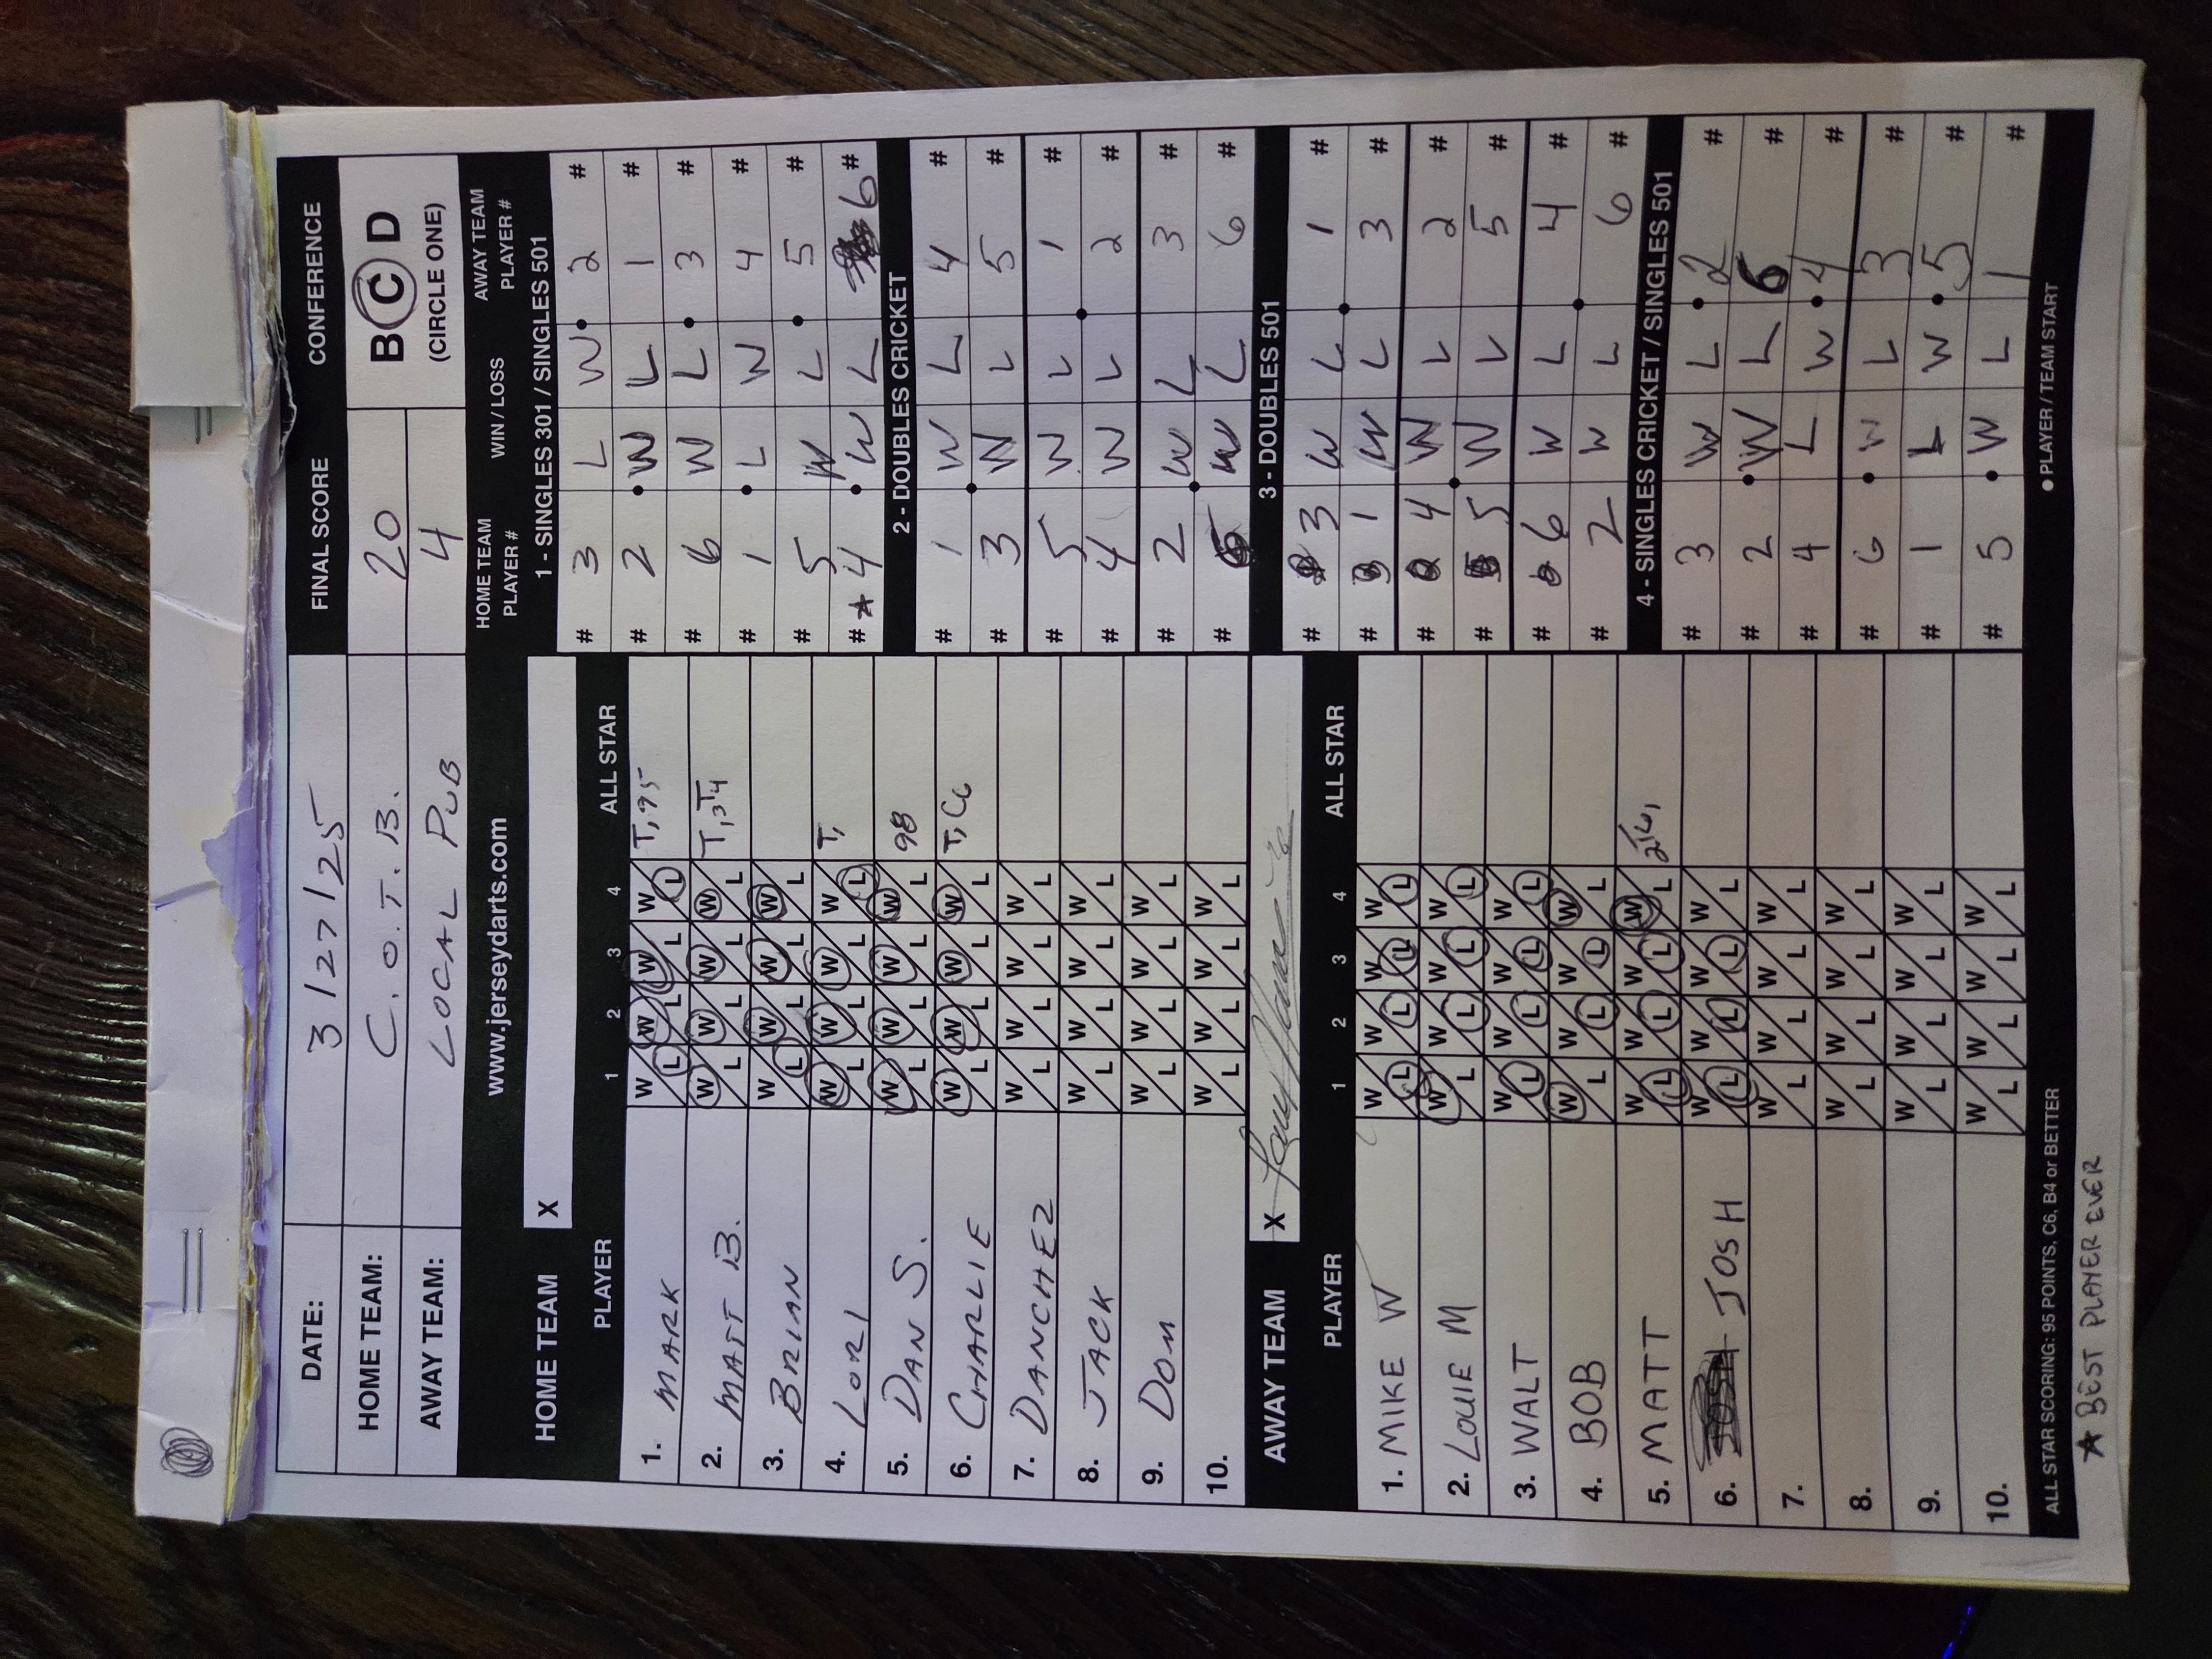 DATE: 3/27/25 FINAL SCORE CONFERENCE
HOME TEAM: C.O.T.B. 20 B C D
AWAY TEAM: LOCAL PUB 4 (CIRCLE ONE)
www.jerseydarts.com
HOME TEAM X
PLAYER 1 2 3 4 ALL STAR
1. MARK W/L W/L W/L W/L T, 95
2. MATT B. W/L W/L W/L W/L T, 3T4
3. BRIAN W/L W/L W/L W/L
4. LORI W/L W/L W/L W/L T,
5. DAN S. W/L W/L W/L W/L 98
6. CHARLIE W/L W/L W/L W/L T, C6
7. DANCHEZ W/L W/L W/L W/L
8. JACK W/L W/L W/L W/L
9. DOM W/L W/L W/L W/L
10. W/L W/L W/L W/L
AWAY TEAM X
PLAYER 1 2 3 4 ALL STAR
1. MIKE W W/L W/L W/L W/L
2. LOUIE M W/L W/L W/L W/L
3. WALT W/L W/L W/L W/L
4. BOB W/L W/L W/L W/L
5. MATT W/L W/L W/L W/L
6. JOSH W/L W/L W/L W/L
7. W/L W/L W/L W/L
8. W/L W/L W/L W/L
9. W/L W/L W/L W/L
10. W/L W/L W/L W/L
HOME TEAM PLAYER # WIN / LOSS AWAY TEAM PLAYER #
1 - SINGLES 301 / SINGLES 501
# 3 L W • 2 #
# 2 • W L 1 #
# 6 W L • 3 #
# 1 • L W 4 #
# 5 W L • 5 #
# ★ 4 • W L 6 #
2 - DOUBLES CRICKET
# 1 W L 4 #
# 3 W L 5 #
# 5 W L 1 #
# 4 W L 2 #
# 2 W L 3 #
# 6 W L 6 #
3 - DOUBLES 501
# 3 W L 1 #
# 1 W L 3 #
# 4 W L 2 #
# 5 W L 5 #
# 6 W L 4 #
# 2 W L 6 #
4 - SINGLES CRICKET / SINGLES 501
# 3 W L • 2 #
# 2 • W L 6 #
# 4 L W • 4 #
# 6 • W L 3 #
# 1 L W • 5 #
# 5 • W L 1 #
ALL STAR SCORING: 95 POINTS, C6, B4 or BETTER ● PLAYER / TEAM START
★ BEST PLAYER EVER